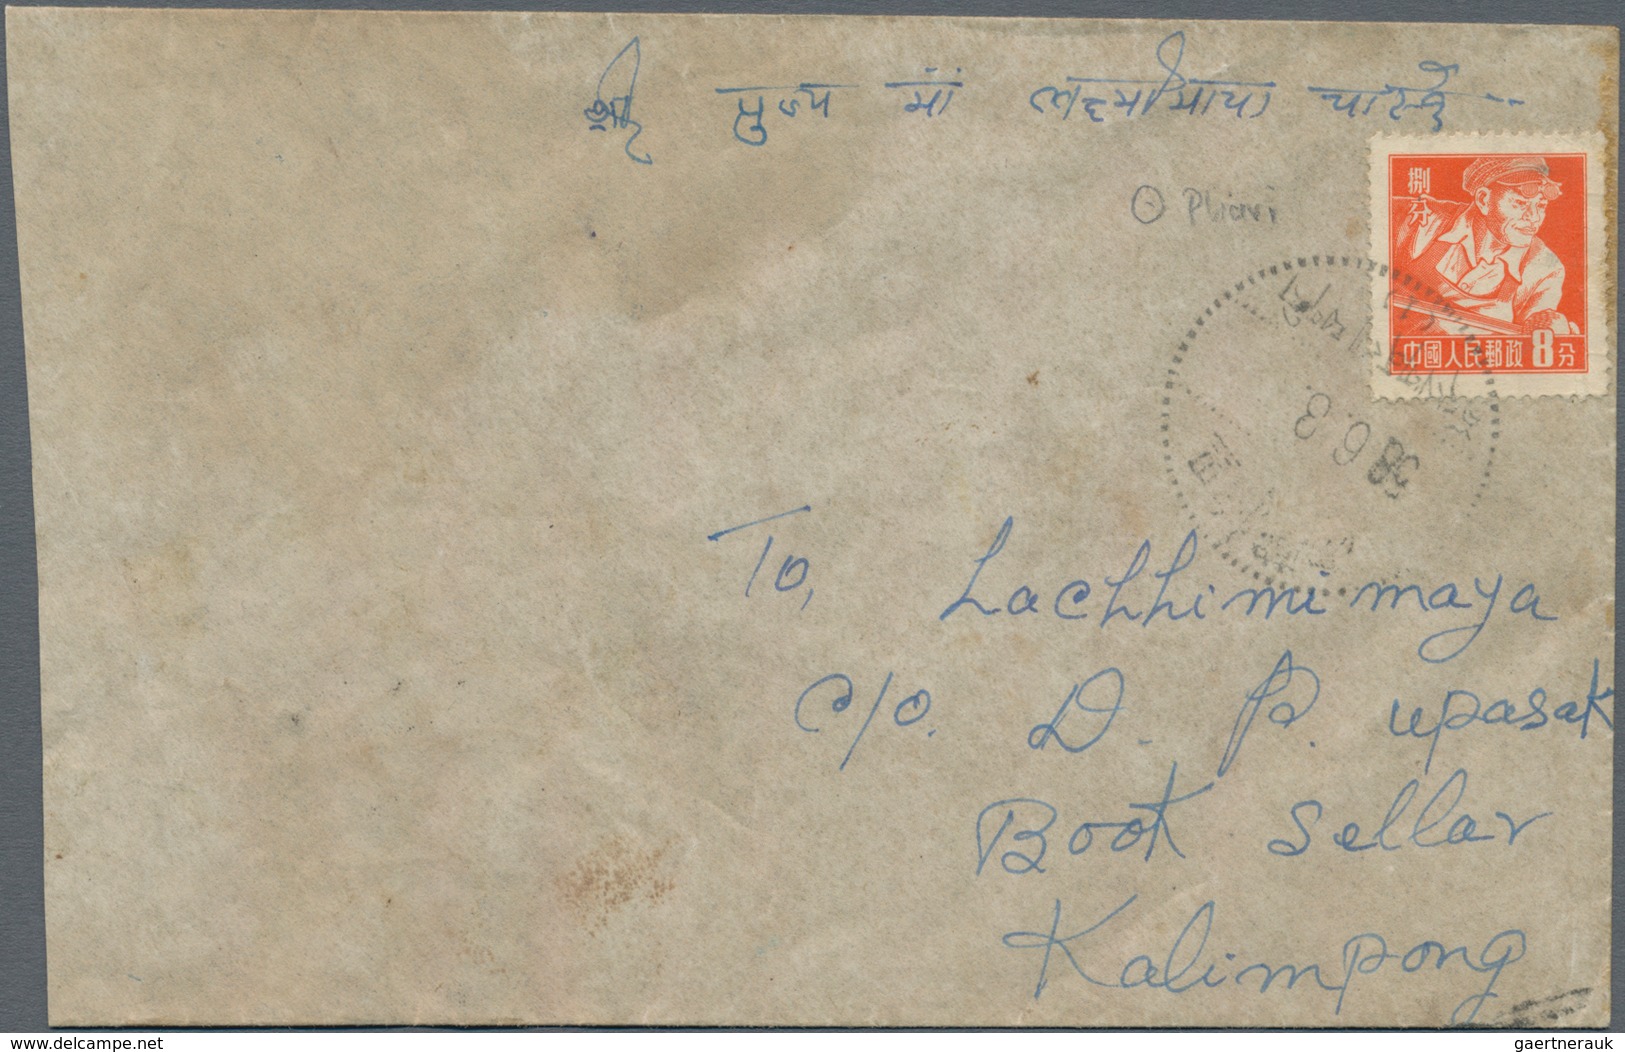 श्री पुज्य मां लक्ष्मीमाया
Phari
捌分
中國人民郵政 8分
To, Lachhimi maya
c/o. D. P. upasak
Book Sellar
Kalimpong
www.delcampe.net
gaertnerauk